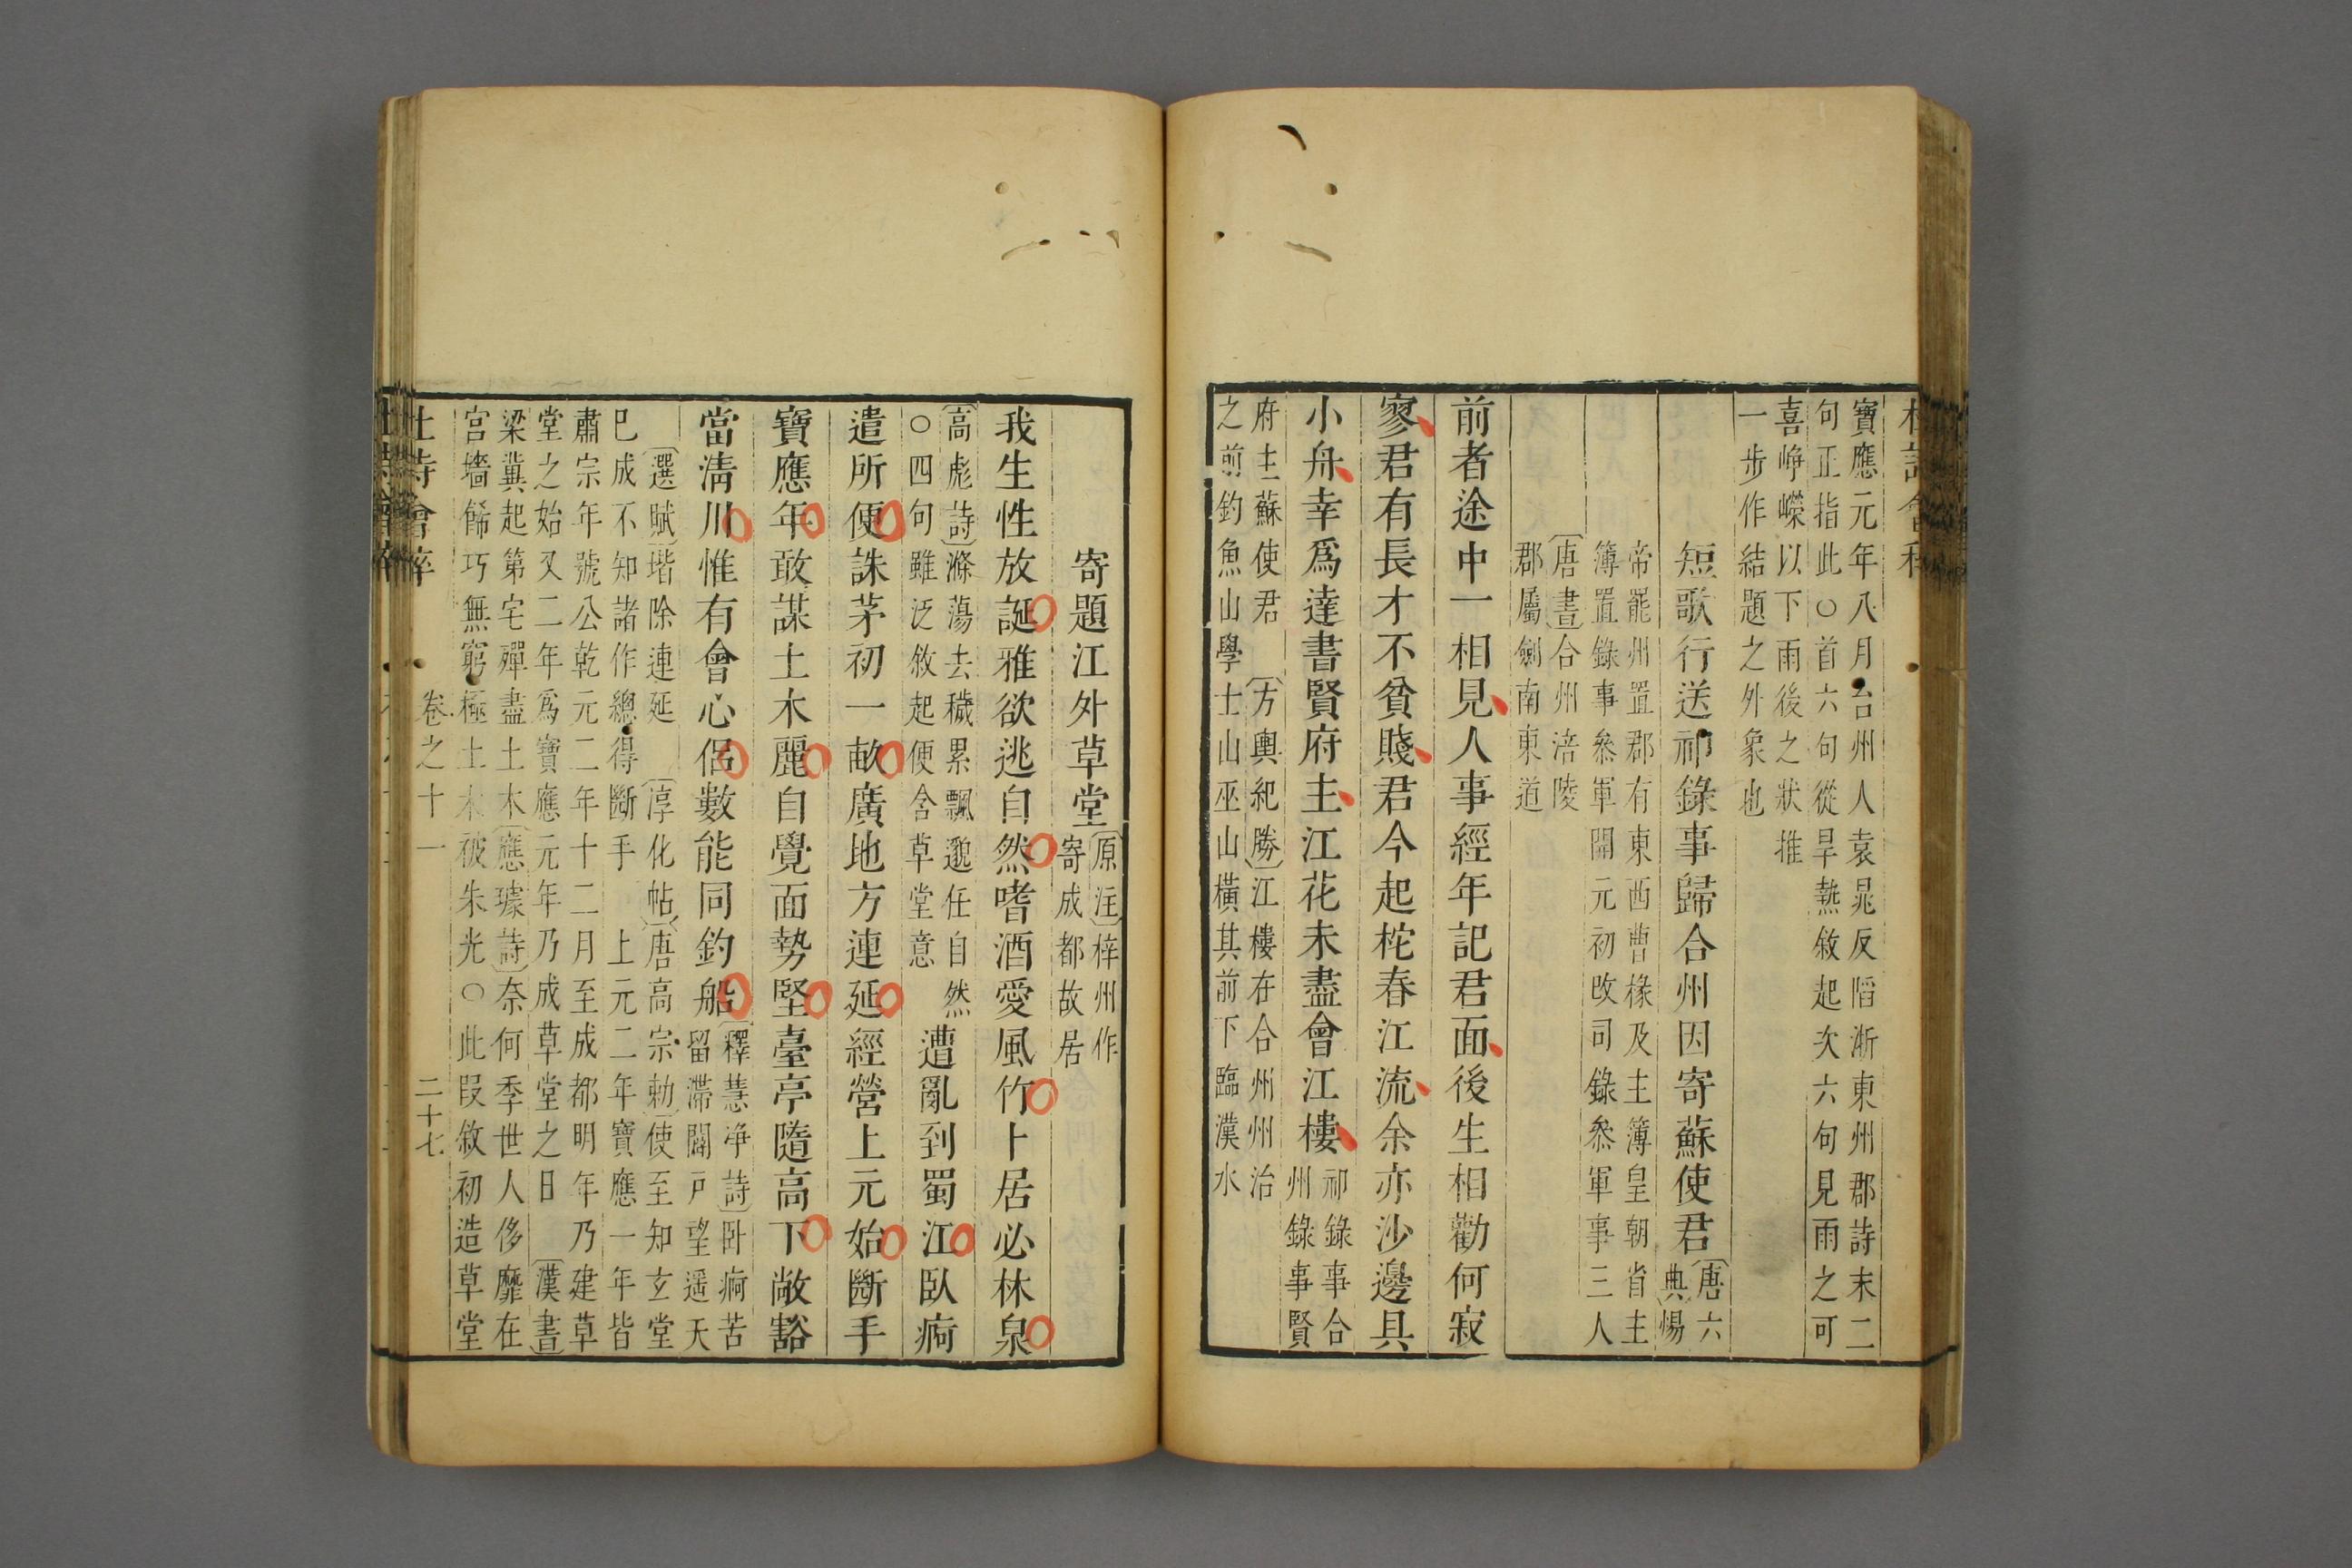 寶應元年八月台州人袁晁反陷浙東州郡詩末二
句正指此○首六句從旱熱敘起次六句見雨之可
喜崢嶸以下雨後之狀推
一步作結題之外象也
短歌行送祁錄事歸合州因寄蘇使君〔唐六
典〕煬
帝罷州置郡有東西曹掾及主簿皇朝省主
簿置錄事叅軍開元初改司錄叅軍事三人
〔唐書〕合州涪陵
郡屬劍南東道
前者途中一相見人事經年記君面後生相勸何寂
寥君有長才不貧賤君今起柁春江流余亦沙邊具
小舟幸爲達書賢府主江花未盡會江樓祁錄事合
州錄事賢
府主蘇使君〔方輿紀勝〕江樓在合州州治
之前釣魚山學士山巫山橫其前下臨漢水
寄題江外草堂〔原注〕梓州作
寄成都故居
我生性放誕雅欲逃自然嗜酒愛風竹卜居必林泉
〔高彪詩〕滌蕩去穢累飄邈任自然
○四句雖泛敘起便含草堂意
遭亂到蜀江臥痾
遣所便誅茅初一畝廣地方連延經營上元始斷手
寶應年敢謀土木麗自覺面勢堅臺亭隨高下敞豁
當淸川惟有會心侶數能同釣船〔釋慧淨詩〕卧痾苦
留滯闢戸望遥天
〔選賦〕堦除連延〔淳化帖〕唐高宗勅〔使至知玄堂
已成不知諸作總得斷手上元二年寶應一年皆
肅宗年號公乾元二年十二月至成都明年乃建草
堂之始又二年爲寶應元年乃成草堂之日〔漢書〕
梁冀起第宅殫盡土木〔應璩詩〕奈何季世人侈靡在
宫墻餙巧無窮極土木被朱光○此叚敘初造草堂
卷之十一 二十七